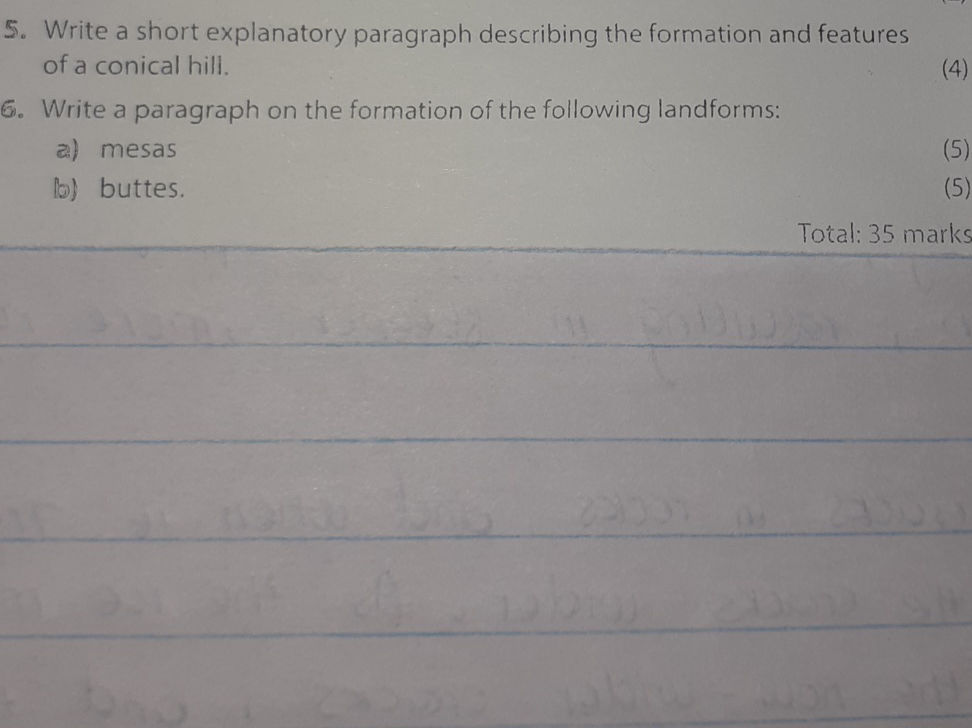 5. Write a short explanatory paragraph describing the formation and features
of a conical hill. (4)
6. Write a paragraph on the formation of the following landforms:
a) mesas (5)
b) buttes. (5)
Total: 35 marks